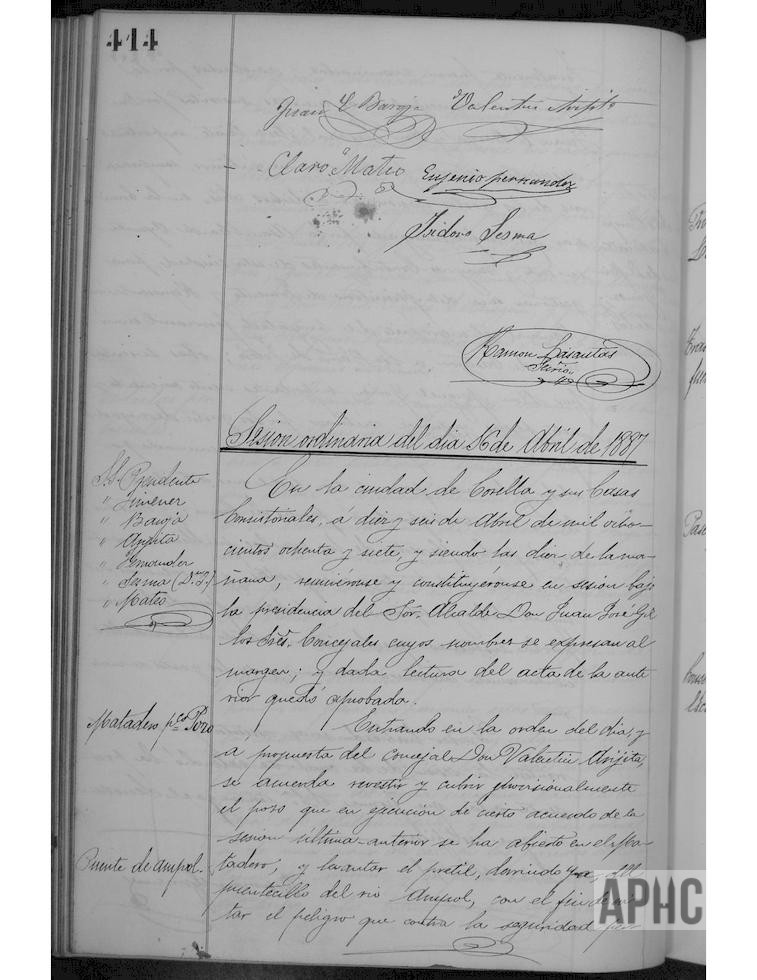 414
Juan L. Baroja Valentin Arijita
Claro Mateo Eugenio fernandez
Isidoro Sesma
Ramon Lasantas
Srio.
Sesion ordinaria del dia 16 de Abril de 1887
S.S. Presidente
" Jimenez
" Baroja
" Arijita
" Fernandez
" Sesma (D. I.)
" Mateo
En la ciudad de Corella y sus Casas
Consistoriales, á diez y seis de Abril de mil ocho-
cientos ochenta y siete, y siendo las diez de la ma-
ñana, reuniéronse y constituyéronse en sesion bajo
la presidencia del Sor. Alcalde Don Juan José Gil
los Sres. Concejales cuyos nombres se expresan al
margen; y dada lectura del acta de la ante
rior quedó aprobada.
Matadero pco Pozo
Entrando en la orden del dia, y
a propuesta del concejal Don Valentin Arijita,
se acuerda revestir y cubrir provisionalmente
el pozo que en ejecucion de cierto acuerdo de la
sesion última anterior se ha abierto en el Ma-
tadero; y levantar el pretil, derruido del
Puente de ampol.
puentecillo del rio Ampol, con el fin de evi-
tar el peligro que contra la seguridad per-
APHC